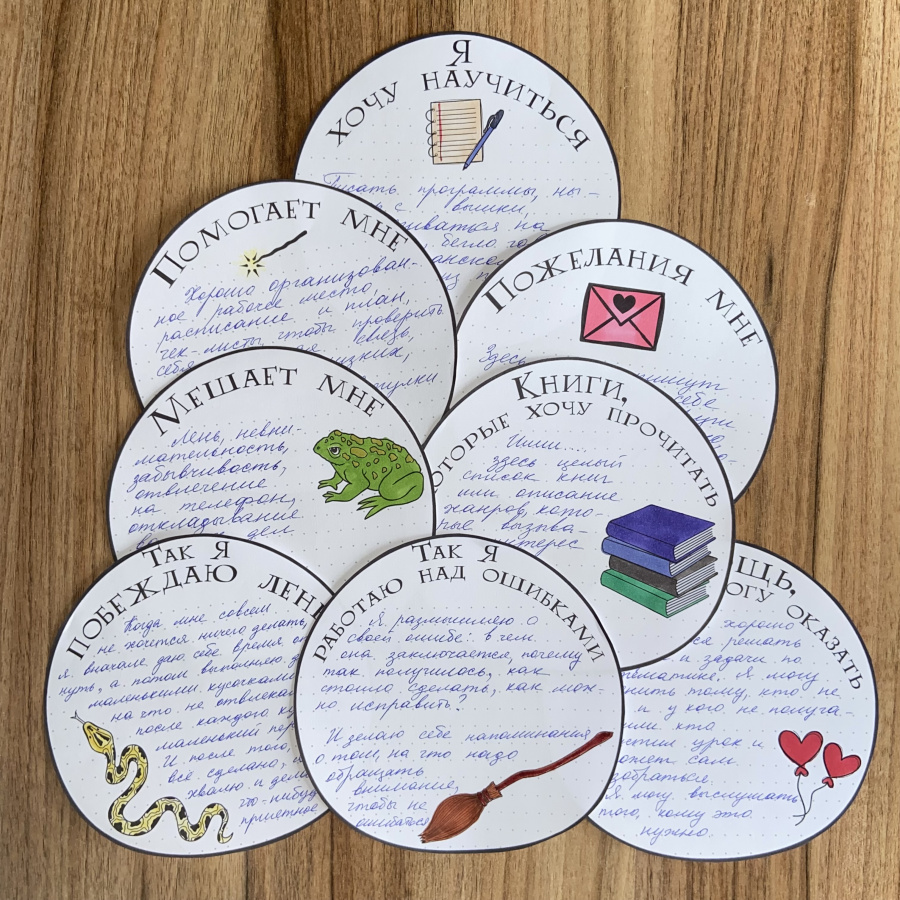 Я
ХОЧУ НАУЧИТЬСЯ
Писать программы, ны-
с вышки,
на
ПОМОГАЕТ МНЕ
Хорошо организован-
ное рабочее место,
расписание и план,
чек-листы чтобы проверить
себя связь,
ПОЖЕЛАНИЯ МНЕ
Здесь
пишут
себе
МЕШАЕТ МНЕ
Лень, невни-
мательность,
забывчивость,
отвлечение
на телефон,
откладывание
дел
КНИГИ,
КОТОРЫЕ ХОЧУ ПРОЧИТАТЬ
Ииии.....
здесь целый
список книг
или описание
жанров, кото-
рые вызыва-
интерес
ТАК Я
ПОБЕЖДАЮ ЛЕНЬ
Когда мне совсем
не хочется ничего делать,
я вначале даю себе время от
нуть, а потом выполняю з
маленькими кусочками
на что не отвлекая
после каждого ку
маленький пер
И после того,
всё сделано,
хвалю и дела
что-нибуд
приятное
ТАК Я
РАБОТАЮ НАД ОШИБКАМИ
Я размышляю о
своей ошибе: в чем
она заключается, почему
так получилось, как
стоило сделать, как мож-
но исправить?
И делаю себе напоминания
о том, на что надо
обращать
внимание,
чтобы не
ошибаться
ЩЬ,
ОГУ ОКАЗАТЬ
хорошо
ся решать
и задачи по
тематике. Я могу
нить тому, кто не
и у кого не получа-
или кто
стил урок и
может сам
зобраться.
Я могу выслушать
того, кому это
нужно.